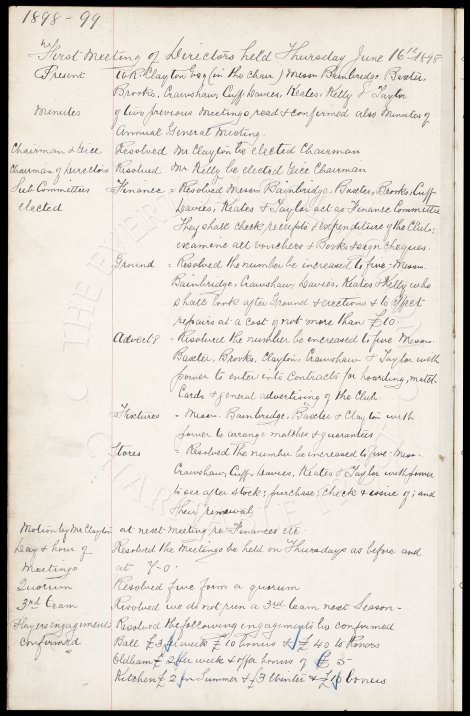 1898-99
First Meeting of Directors held Thursday June 16th 1898
Present W.R. Clayton Esq (in the chair) Messrs Bainbridge, Baxter
Brooks, Crawshaw, Cuff, Davies, Keates, Kelly & Taylor
Minutes of two previous meetings, read & confirmed also minutes of
Annual General Meeting.
Chairman & Vice Resolved Mr Clayton be elected Chairman
Chairman of Directors Resolved Mr Kelly be elected Vice Chairman
Sub Committees Finance - Resolved Messrs Bainbridge, Baxter, Brooks, Cuff
elected Davies, Keates & Taylor act as Finance Committee
They shall check receipts & expenditure of the Club:
examine all vouchers & Books & sign cheques.
Ground - Resolved the number be increased to five - Messrs
Bainbridge, Crawshaw, Davies, Keates & Kelly who
shall look after Ground & erections & to effect
repairs at a cost of not more than £10
Advertg - Resolved the number be increased to five Messrs
Baxter, Brooks, Clayton, Crawshaw & Taylor with
power to enter into contracts for hoarding, match
Cards & general advertising of the Club
Fixtures - Messrs Bainbridge, Baxter & Clayton with
power to arrange matches & guarantees
Stores - Resolved the number be increased to five - Messrs
Crawshaw, Cuff, Davies, Keates & Taylor with power
to see after stock; purchase, check & issue of; and
their renewal
Motion by Mr Clayton at next meeting re Finances etc
Day & hour of Resolved the Meetings be held on Thursdays as before and
Meetings at 7-0.
Quorum Resolved five form a quorum
3rd Team Resolved we do not run a 3rd team next Season -
Players engagements Resolved the following engagements be confirmed
confirmed Ball £3 per week £10 bonus & £40 to Rovers
Oldham £2 per week & offer bonus of £5
Kitchen £2 in Summer & £3 Winter & £10 bonus
THE EVERTON